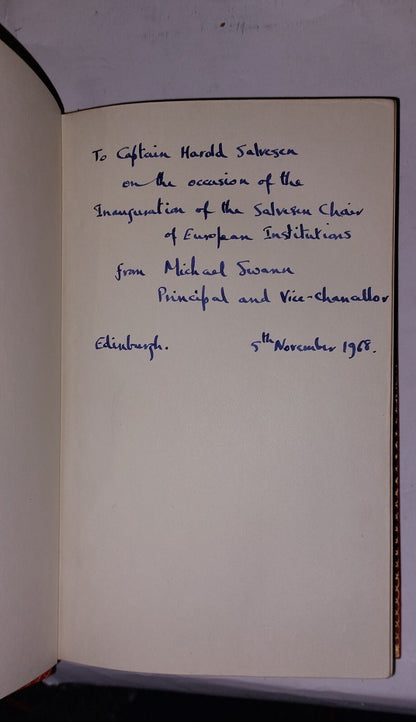 To Captain Harold Salvesen
on the occasion of the
Inauguration of the Salvesen Chair
of European Institutions
from Michael Swann
Principal and Vice-Chancellor
Edinburgh. 5th November 1968.